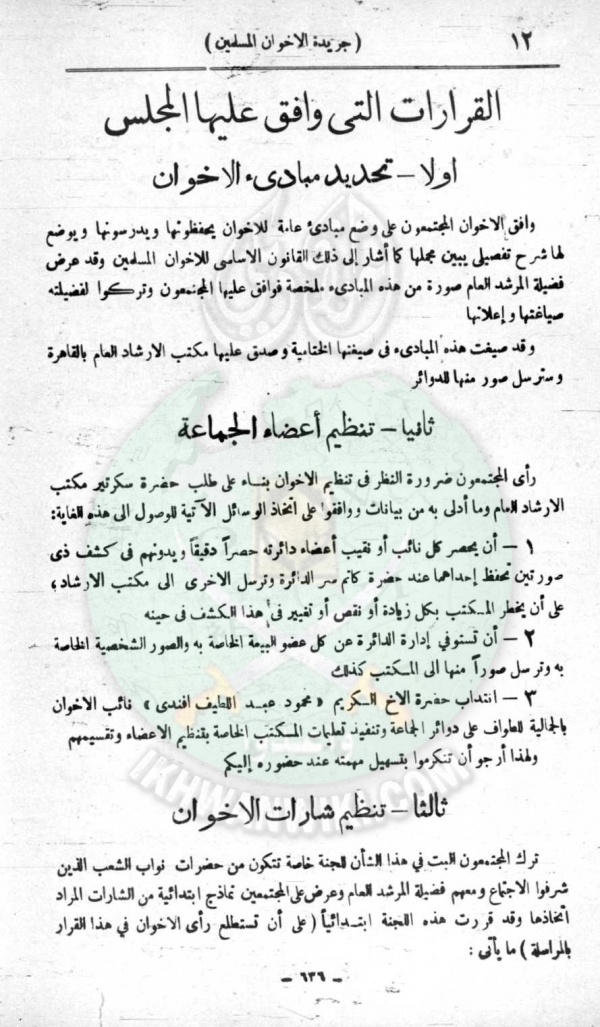 ١٢
( جريدة الاخوان المسلمين )
القرارات التى وافق عليها المجلس
اولا – تحديد مبادىء الاخوان
وافق الاخوان المجتمعون على وضع مبادئ عامة للاخوان يحفظونها ويدرسونها ويوضع
لها شرح تفصيلى يبين مجملها كما أشار إلى ذلك القانون الاساسى للاخوان المسلمين وقد عرض
فضيلة المرشد العام صورة من هذه المبادىء ملخصة فوافق عليها المجتمعون وتركوا لفضيلته
صياغتها وإعلانها
وقد صيغت هذه المبادىء فى صيغتها الختامية وصدق عليها مكتب الارشاد العام بالقاهرة
وسترسل صور منها للدوائر
ثانيا – تنظيم أعضاء الجماعة
رأى المجتمعون ضرورة النظر فى تنظيم الاخوان بناء على طلب حضرة سكرتير مكتب
الارشاد العام وما أدلى به من بيانات ووافقوا على اتخاذ الوسائل الآتية للوصول الى هذه الغاية:
١ – أن يحصر كل نائب أو نقيب أعضاء دائرته حصراً دقيقاً ويدونهم فى كشف ذى
صورتين تحفظ إحداهما عند حضرة كاتم سر الدائرة وترسل الاخرى الى مكتب الارشاد ،
على أن يخطر المكتب بكل زيادة أو نقص أو تغيير فى هذا الكشف فى حينه
٢ – أن تستوفي إدارة الدائرة عن كل عضو البيعة الخاصة به والصور الشخصية الخاصة
به وترسل صوراً منها الى المكتب كذلك
٣ – انتداب حضرة الاخ الكريم « محمود عبد اللطيف افندى » نائب الاخوان
بالجمالية للطواف على دوائر الجماعة وتنفيذ تعليمات المكتب الخاصة بتنظيم الاعضاء وتقسيمهم
ولهذا أرجو أن تتكرموا بتسهيل مهمته عند حضوره إليكم
ثالثا – تنظيم شارات الاخوان
ترك المجتمعون البت في هذا الشأن للجنة خاصة تتكون من حضرات نواب الشعب الذين
شرفوا الاجتماع ومعهم فضيلة المرشد العام وعرض على المجتمعين نماذج ابتدائية من الشارات المراد
اتخاذها وقد قررت هذه اللجنة ابتدائياً ( على أن تستطلع رأى الاخوان في هذا القرار
بالمراسلة ) ما يأتى :
– ٦٣٦ –
IKHWANWIKI.COM